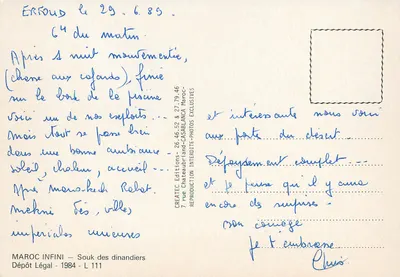 ERFOUD le 29.6.89
6h du matin
Après 1 nuit mouvementée,
(chasse aux cafards), finie
sur le bord de la piscine
voici un de nos exploits...
Mais tout se passe bien
dans une bonne ambiance
soleil, chaleur, accueil...
Après Marrakech Rabat
Meknès Fès, villes
impériales curieuses
et intéressantes nous voici
aux portes du désert...
Dépaysement complet...
et je pense qu'il y aura
encore des surprises.
bon courage
je t'embrasse
MAROC INFINI - Souk des dinandiers
Dépôt Légal - 1984 - L 111
CREATEC Editions - 26.46.52 & 27.79.46
rue Chateaubriand-CASABLANCA Maroc-
REPRODUCTION INTERDITE-PHOTOS EXCLUSIVES